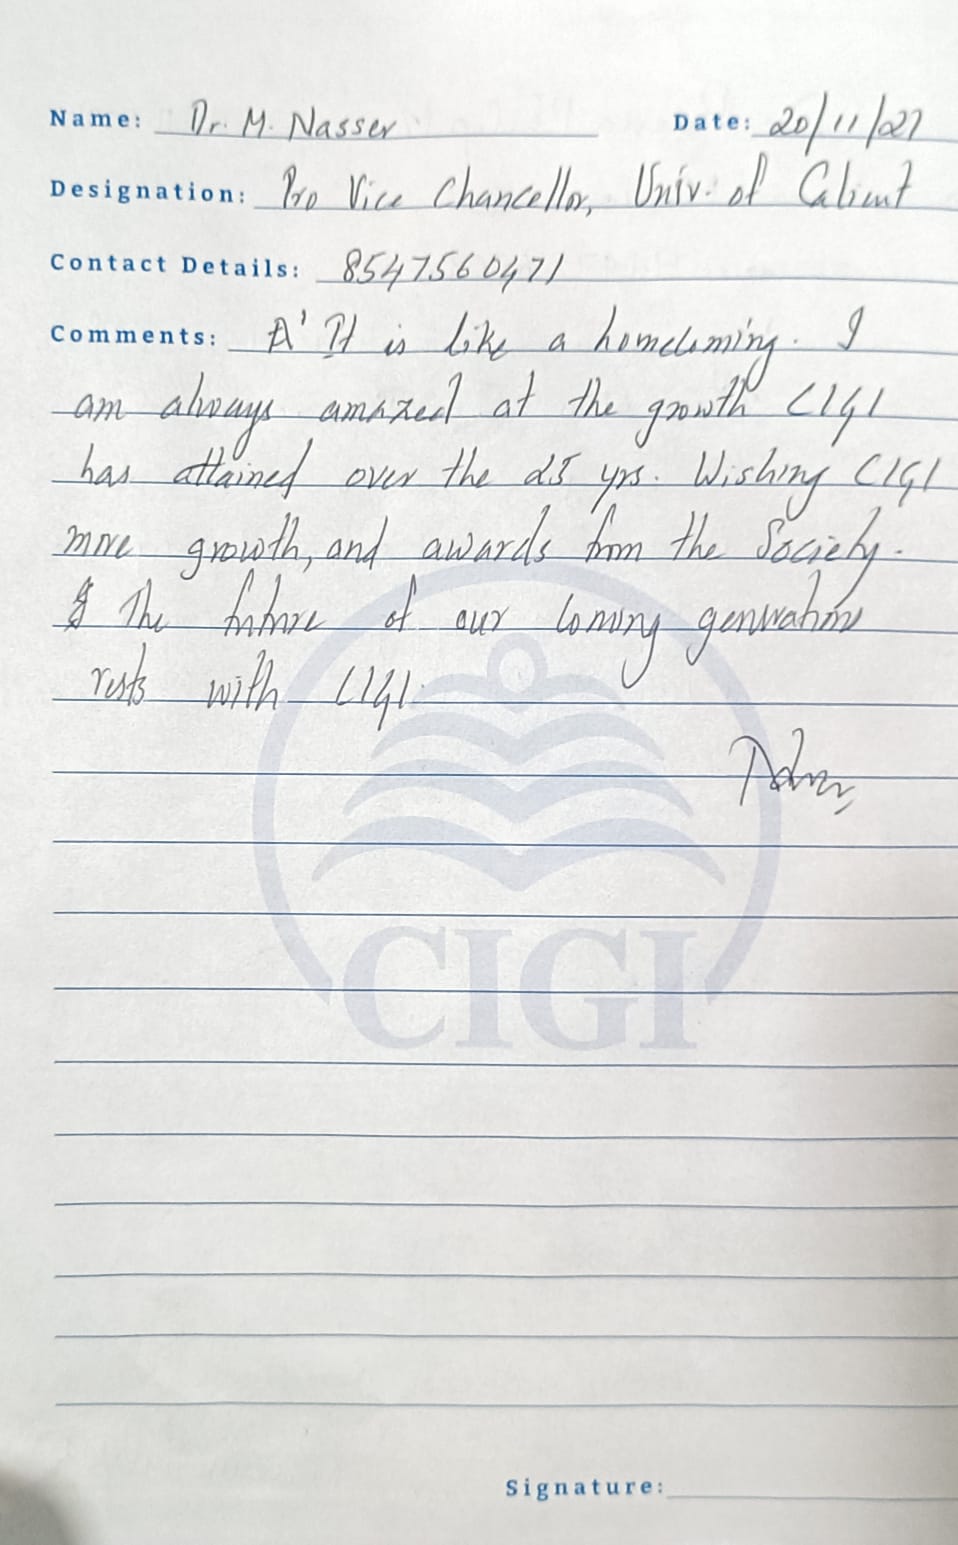 Name: Dr. M. Nasser Date: 20/11/21
Designation: Pro Vice Chancellor, Univ. of Calicut
Contact Details: 8547560471
Comments: It is like a homecoming. I
am always amazed at the growth CIGI
has attained over the 25 yrs. Wishing CIGI
more growth, and awards from the Society.
The future of our coming generations
rests with CIGI.
CIGI
Signature: